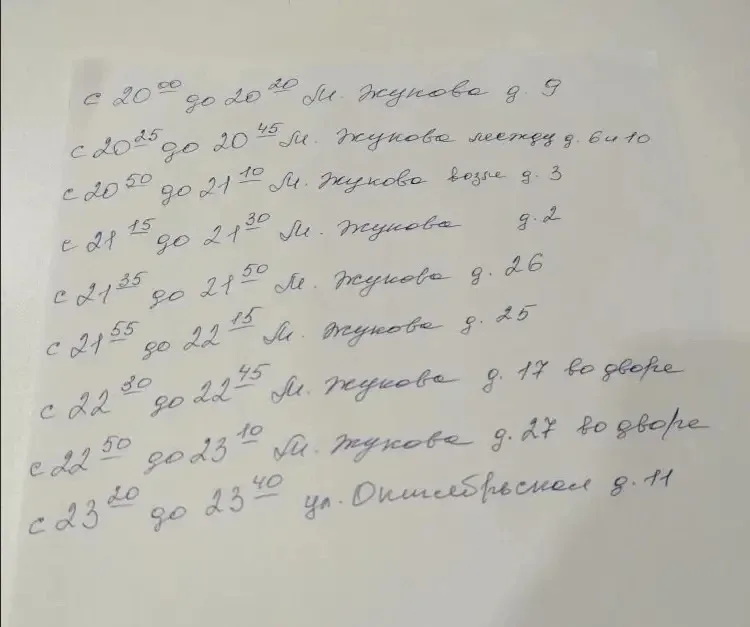 с 20⁰⁰ до 20²⁰ М. Жукова д. 9
с 20²⁵ до 20⁴⁵ М. Жукова между д. 6 и 10
с 20⁵⁰ до 21¹⁰ М. Жукова возле д. 3
с 21¹⁵ до 21³⁰ М. Жукова д. 2
с 21³⁵ до 21⁵⁰ М. Жукова д. 26
с 21⁵⁵ до 22¹⁵ М. Жукова д. 25
с 22³⁰ до 22⁴⁵ М. Жукова д. 17 во дворе
с 22⁵⁰ до 23¹⁰ М. Жукова д. 27 во дворе
с 23²⁰ до 23⁴⁰ ул. Октябрьская д. 11